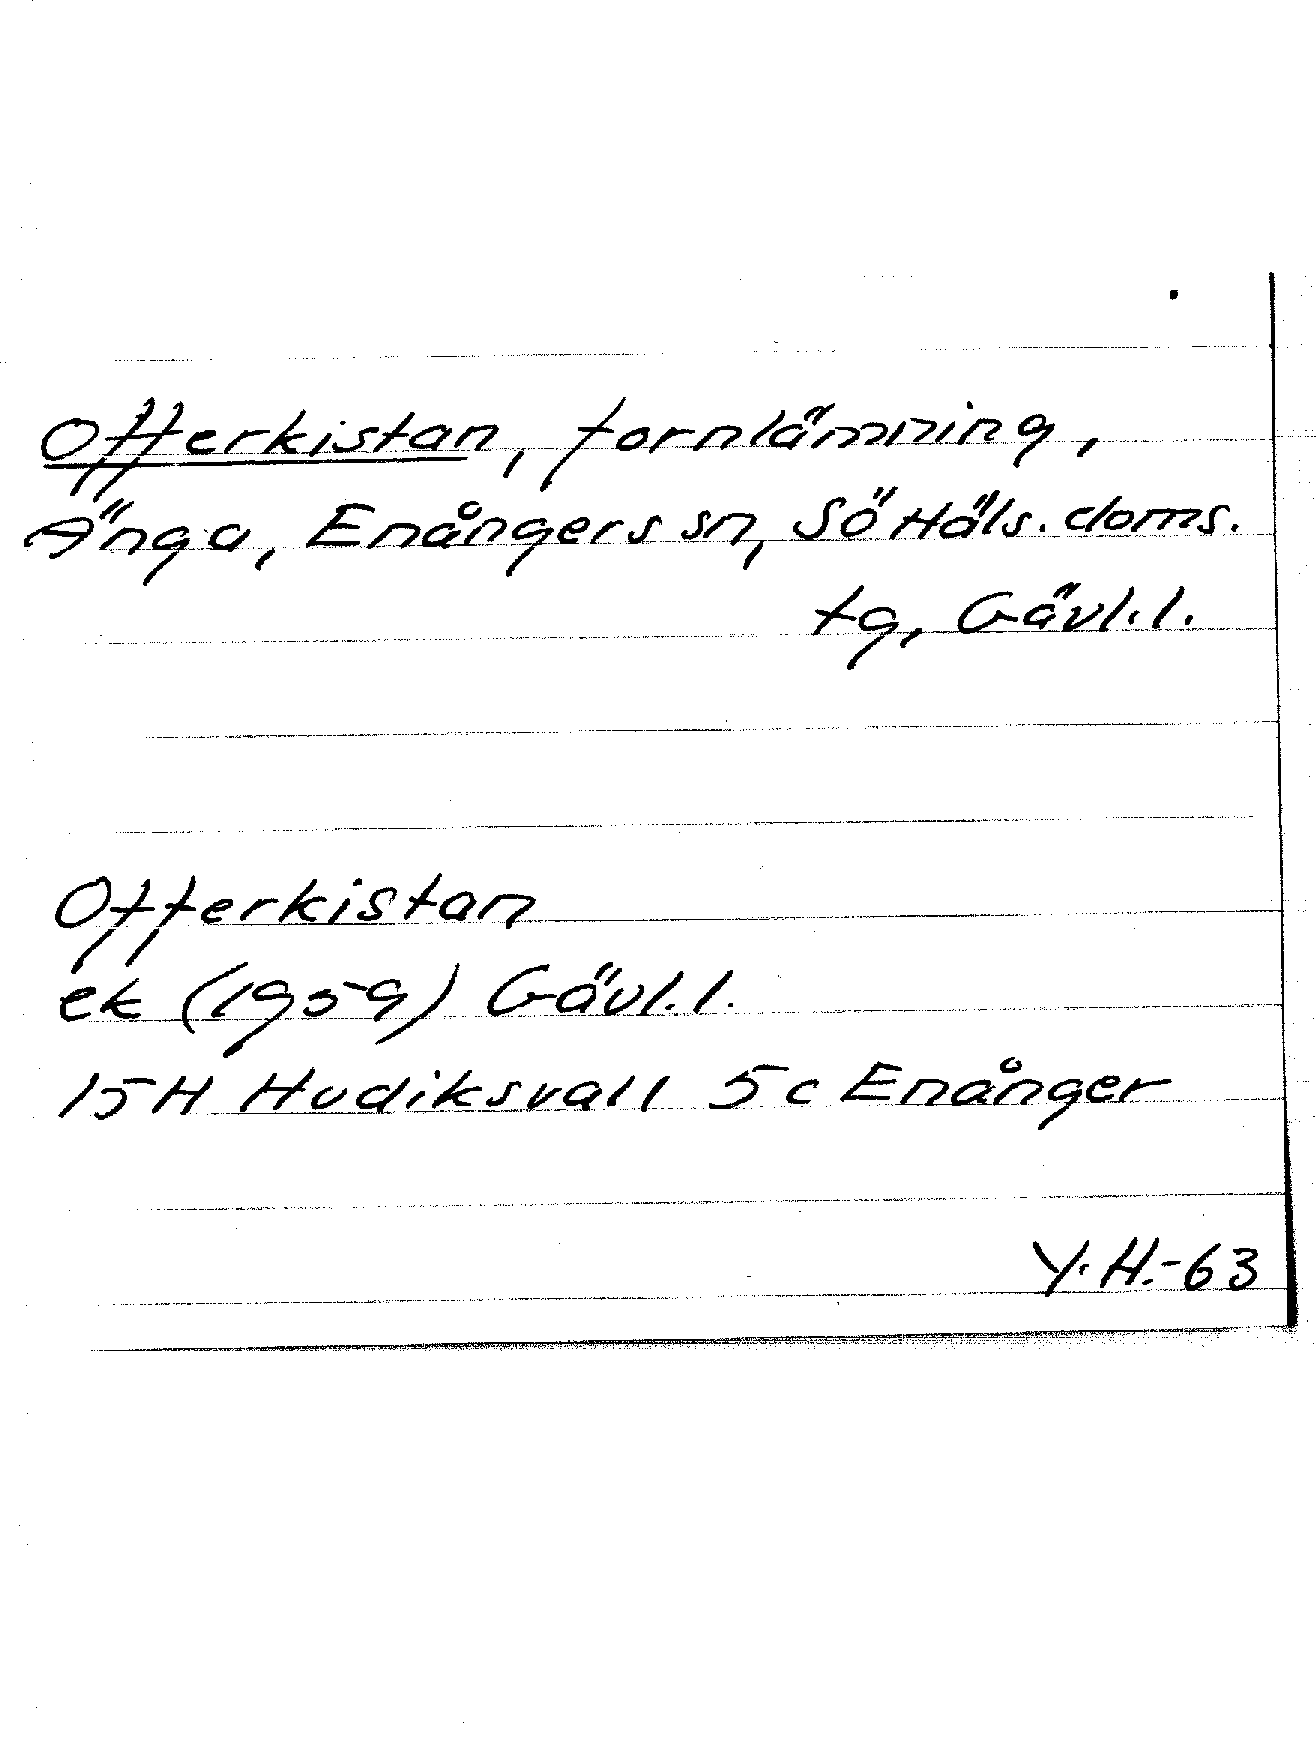 Offerkistan, fornlämning,
Änga, Enångers sn, Sö Häls. doms.
tg, Gävl.l.
Offerkistan
ek (1959) Gävl.l.
15H Hudiksvall 5c Enånger
Y.H.-63